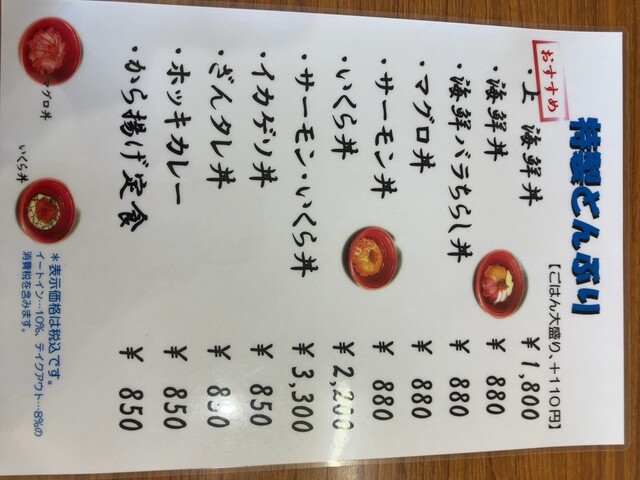 特製どんぶり
【ごはん大盛り、+110円】
おすすめ
・上 海鮮丼 ¥1,800
・海鮮丼 ¥880
・海鮮バラちらし丼 ¥880
・マグロ丼 ¥880
・サーモン丼 ¥880
・いくら丼 ¥2,200
・サーモン・いくら丼 ¥3,300
・イカゲソ丼 ¥850
・ざんタレ丼 ¥850
・ホッキカレー ¥850
・から揚げ定食 ¥850
マグロ丼
いくら丼
*表示価格は税込です。
イートイン…10%、テイクアウト…8%の
消費税を含みます。